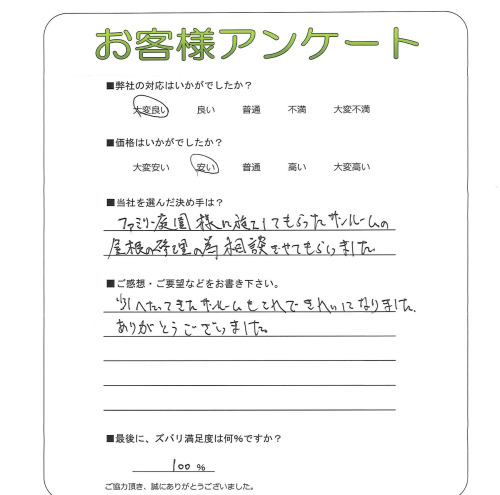 お客様アンケート
■弊社の対応はいかがでしたか？
大変良い 良い 普通 不満 大変不満
■価格はいかがでしたか？
大変安い 安い 普通 高い 大変高い
■当社を選んだ決め手は？
ファミリー庭園様に施工してもらったサンルームの
屋根の修理の為相談させてもらいました
■ご感想・ご要望などをお書き下さい。
少しへたってきたサンルームもこれできれいになりました。
ありがとうございました。
■最後に、ズバリ満足度は何％ですか？
100 %
ご協力頂き、誠にありがとうございました。